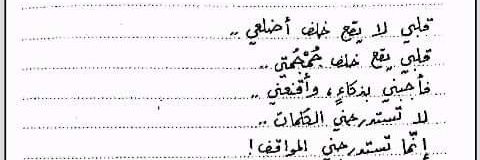 قلبي لا يقع خلف أضلعي ..
قلبي يقع خلف جُمْجُمتي ..
فأجبني بذكاءٍ، وأقنعني ..
لا تستدرجني الكلمات ..
إنّما تستدرجني المواقف!